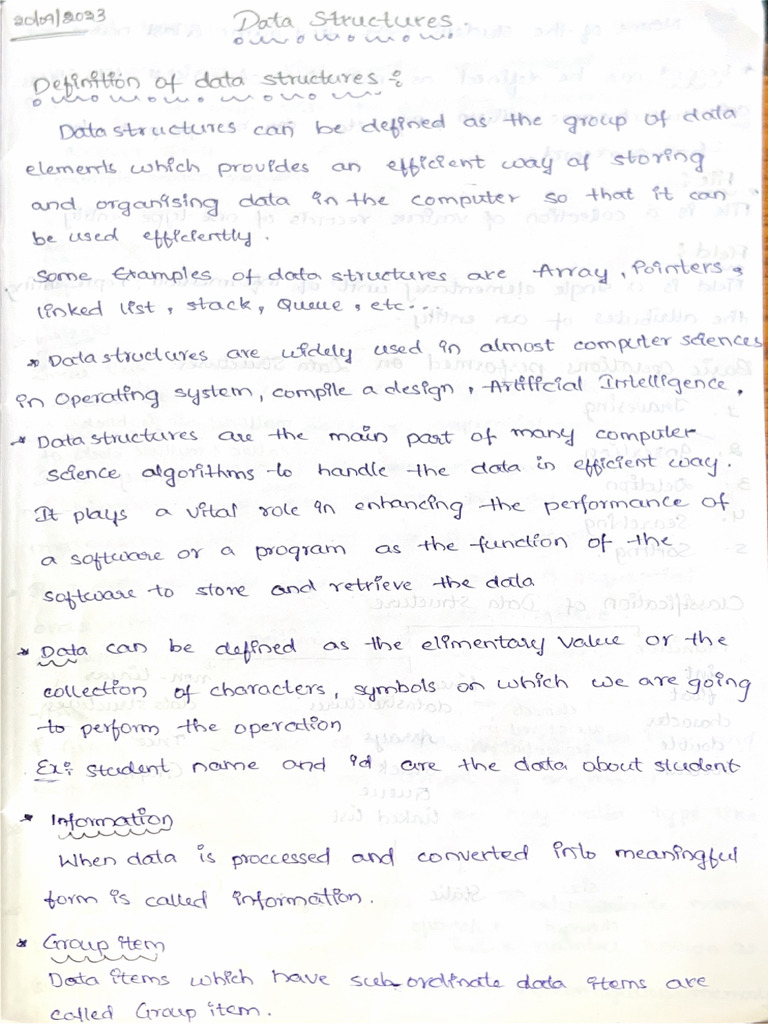 20/09/2023
Data Structures.
Definition of data structures :
Data structures can be defined as the group of data
elements which provides an efficient way of storing
and organising data in the computer so that it can
be used efficiently.
Some Examples of data structures are Array, Pointers,
linked list, stack, Queue, etc...
* Data structures are widely used in almost computer sciences
in Operating system, compile a design, Artificial Intelligence,
* Data structures are the main part of many computer
science algorithms to handle the data in efficient way.
It plays a vital role in enhancing the performance of
a software or a program as the function of the
software to store and retrieve the data
* Data can be defined as the elimentary value or the
collection of characters, symbols on which we are going
to perform the operation
Ex: student name and id are the data about student
* Information
When data is proccessed and converted into meaningful
form is called information.
* Group item
Data items which have sub-ordinate data items are
called Group item.